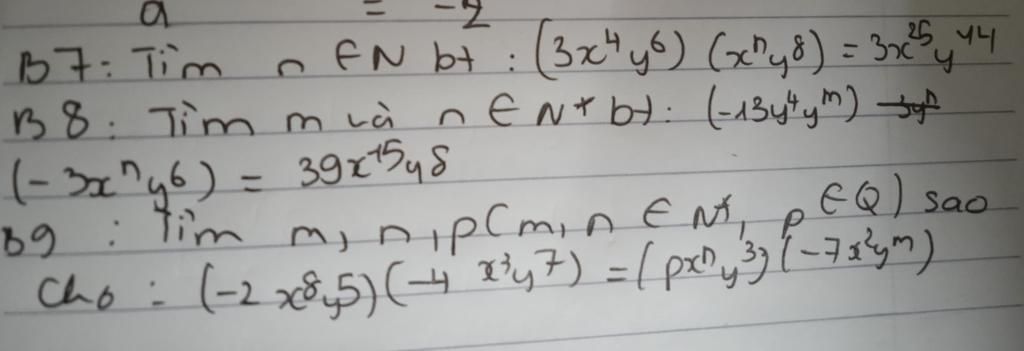 a = -2
B7: Tìm n ∈ N bt : (3x⁴y⁶) (xⁿy⁸) = 3x²⁵y¹⁴
B8 : Tìm m và n ∈ N* bt: (-13y⁴yᵐ)
(-3xⁿy⁶) = 39x¹⁵y⁸
B9 : Tìm m, n, p (m, n ∈ N*, p ∈ Q) sao
Cho : (-2x⁸y⁵)(-4 x³y⁷) = (pxⁿy³)(-7x²yᵐ)